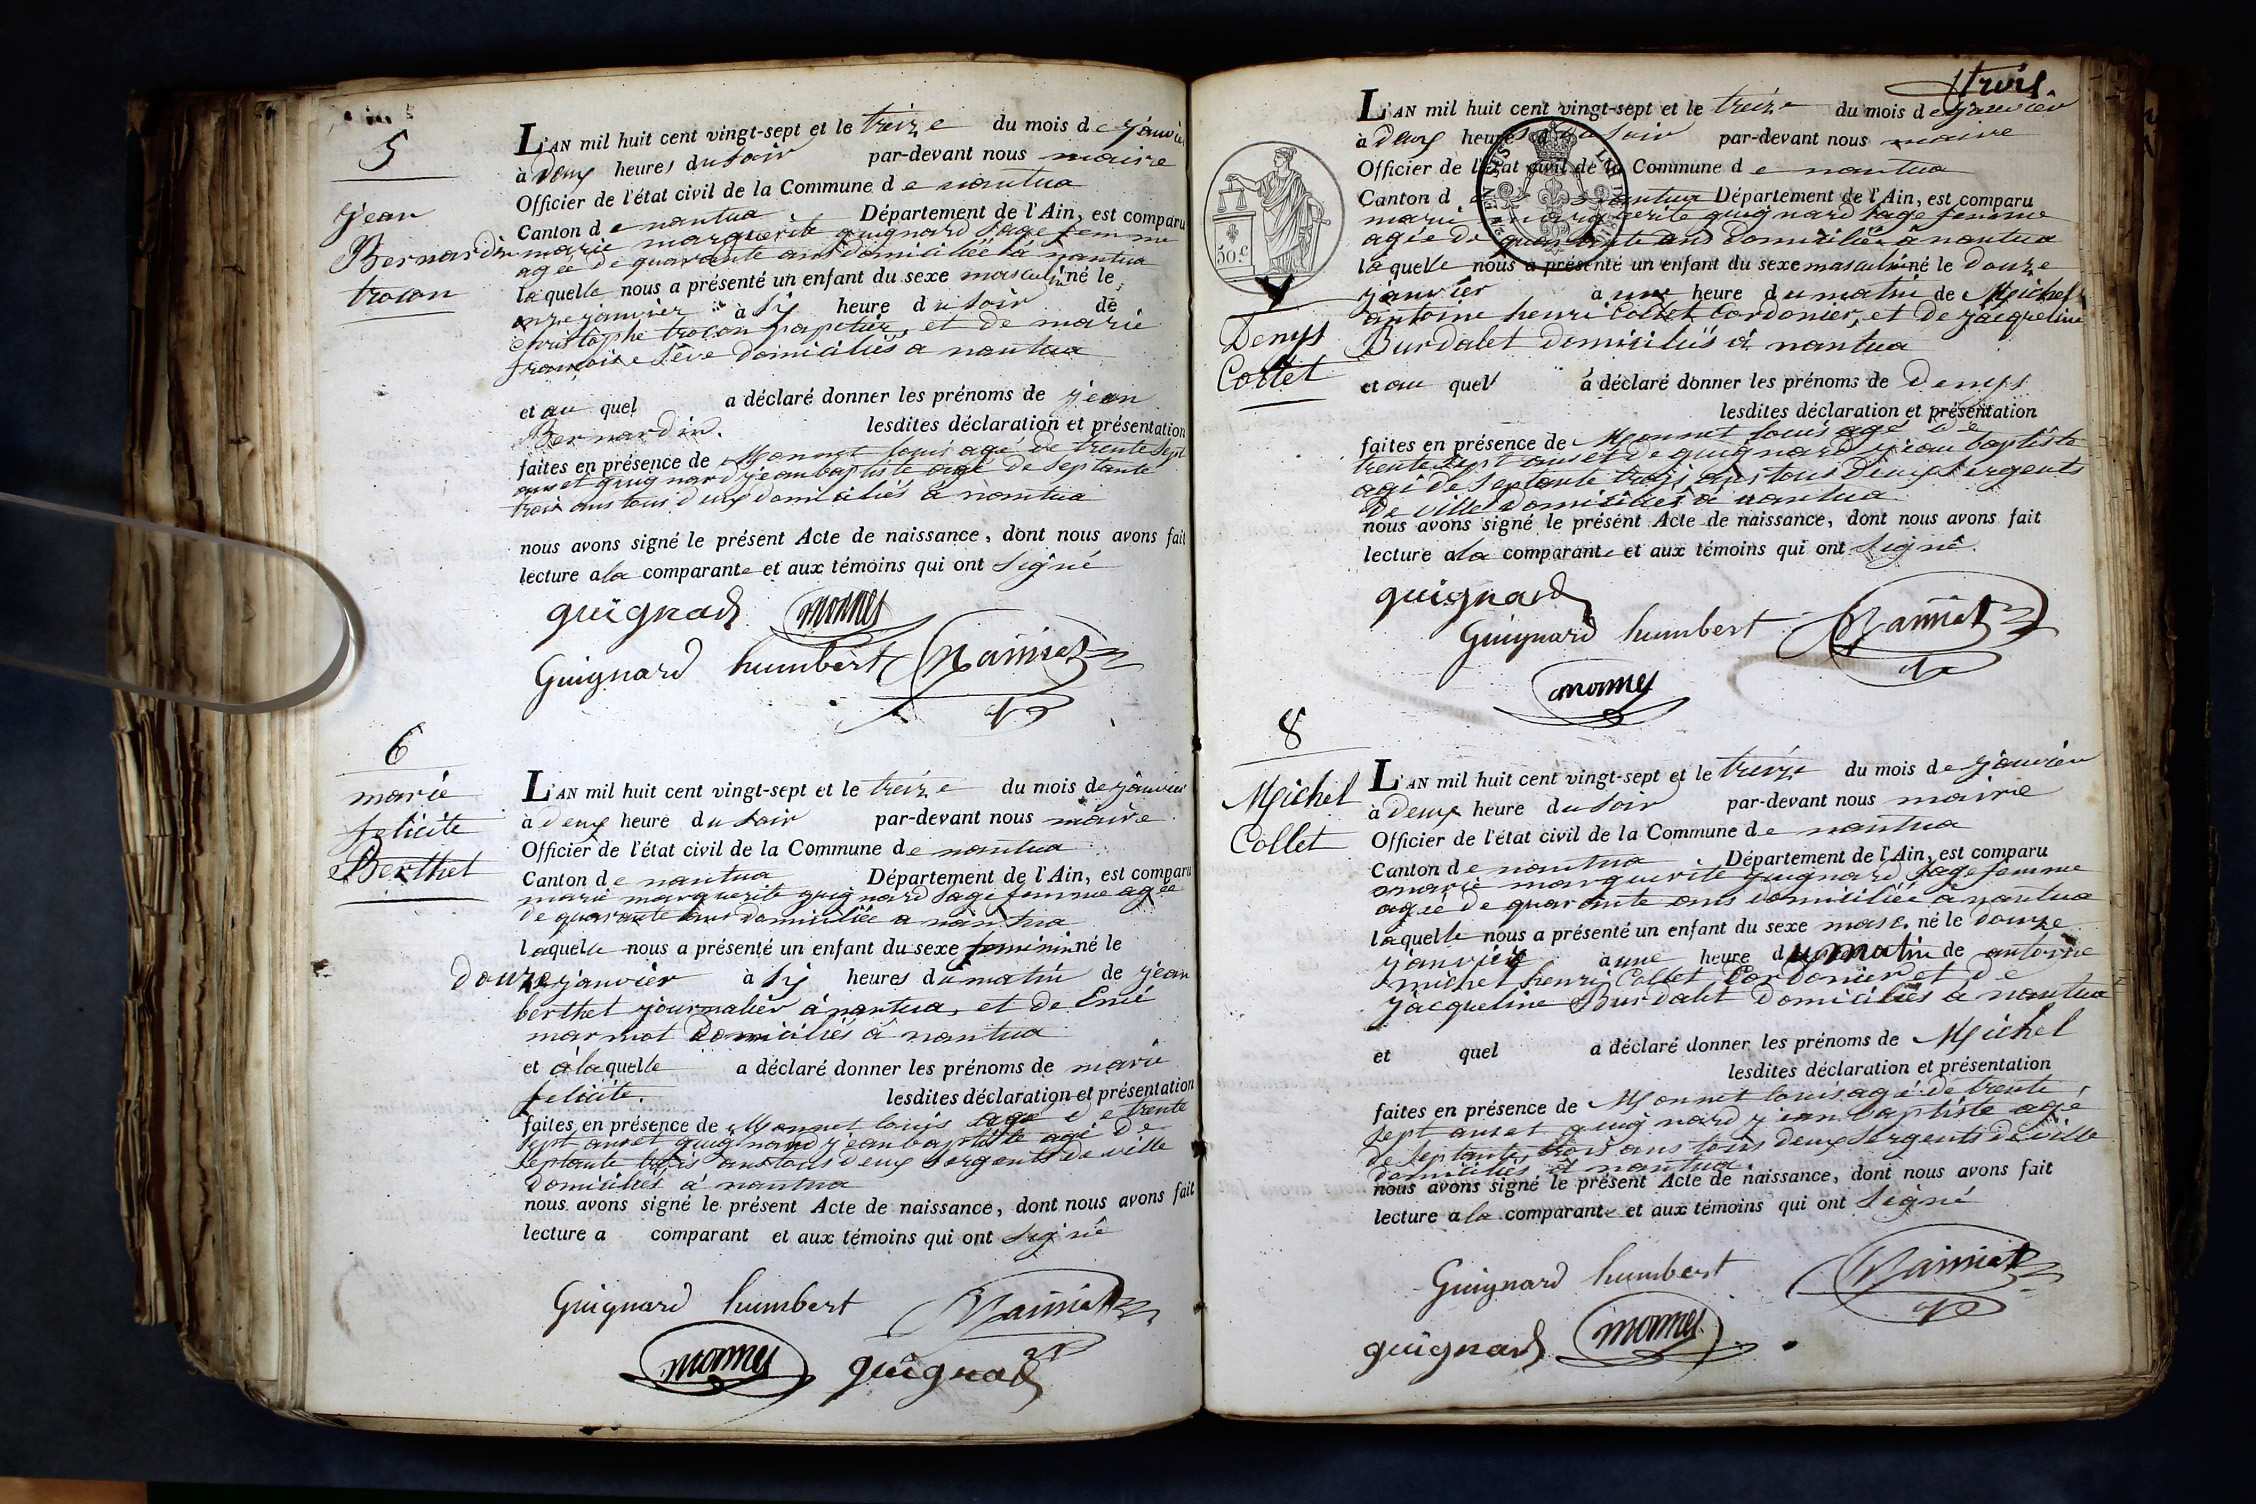 5
Jean
Bernardin
trocon
L'AN mil huit cent vingt-sept et le treize du mois de janvier
à deux heures du soir par-devant nous maire
Officier de l'état civil de la Commune de nantua
Canton de nantua Département de l'Ain, est comparu
marie marguerite guignard sage femme
agée de quarante ans domiciliée à nantua
laquelle nous a présenté un enfant du sexe masculin né le
onze janvier à six heure du soir de
christophe trocon papetier, et de marie
françoise sève domiciliés a nantua
et au quel a déclaré donner les prénoms de jean
Bernardin. lesdites déclaration et présentation
faites en présence de Monnet louis agé de trente sept
ans et guignard jean baptiste agé de septante
trois ans tous deux domiciliés à nantua
nous avons signé le présent Acte de naissance, dont nous avons fait
lecture a la comparante et aux témoins qui ont signé
guignard monnet
Guignard humbert
6
marie
felicite
Berthet
L'AN mil huit cent vingt-sept et le treize du mois de janvier
à deux heure du soir par-devant nous maire
Officier de l'état civil de la Commune de nantua
Canton de nantua Département de l'Ain, est comparu
marie marguerite guignard sage femme agée
de quarante ans domiciliée a nantua
laquelle nous a présenté un enfant du sexe feminin né le
douze janvier à six heures du matin de jean
berthet journalier à nantua, et de
marmot domiciliés à nantua
et à laquelle a déclaré donner les prénoms de marie
felicite. lesdites déclaration et présentation
faites en présence de Monnet louis agé de trente
sept ans et guignard jean baptiste agé de
septante trois ans tous deux sergents de ville
domiciliés a nantua
nous avons signé le présent Acte de naissance, dont nous avons fait
lecture a comparant et aux témoins qui ont signé
Guignard humbert
monnet guignard
trois.
50 c
Denys
Collet
L'AN mil huit cent vingt-sept et le treize du mois de janvier
à deux heures du soir par-devant nous maire
Officier de l'état civil de la Commune de nantua
Canton de nantua Département de l'Ain, est comparu
marie marguerite guignard sage femme
agée de quarante ans domiciliée à nantua
laquelle nous a présenté un enfant du sexe masculin né le douze
janvier à une heure du matin de Michel
antoine henri Collet Cordonier, et de jacqueline
Burdalet domiciliés à nantua
et au quel a déclaré donner les prénoms de Denys
lesdites déclaration et présentation
faites en présence de Monnet louis agé de
trente sept ans et de guignard jean baptiste
agé de septante trois ans tous deux sergents
de ville domiciliés a nantua
nous avons signé le présent Acte de naissance, dont nous avons fait
lecture a la comparante et aux témoins qui ont signé.
guignard
Guignard humbert
monnet
8
Michel
Collet
L'AN mil huit cent vingt-sept et le treize du mois de janvier
à deux heure du soir par-devant nous maire
Officier de l'état civil de la Commune de nantua
Canton de nantua Département de l'Ain, est comparu
marie marguerite guignard sage femme
agée de quarante ans domiciliée à nantua
laquelle nous a présenté un enfant du sexe masc. né le douze
janvier à une heure du matin de antoine
michel henri Collet Cordonier et de
jacqueline Burdalet domiciliés à nantua
et quel a déclaré donner les prénoms de Michel
lesdites déclaration et présentation
faites en présence de Monnet louis agé de trente
sept ans et guignard jean baptiste agé
de septante trois ans tous deux sergents de ville
domiciliés à nantua.
nous avons signé le présent Acte de naissance, dont nous avons fait
lecture a la comparante et aux témoins qui ont signé
Guignard humbert
guignard monnet